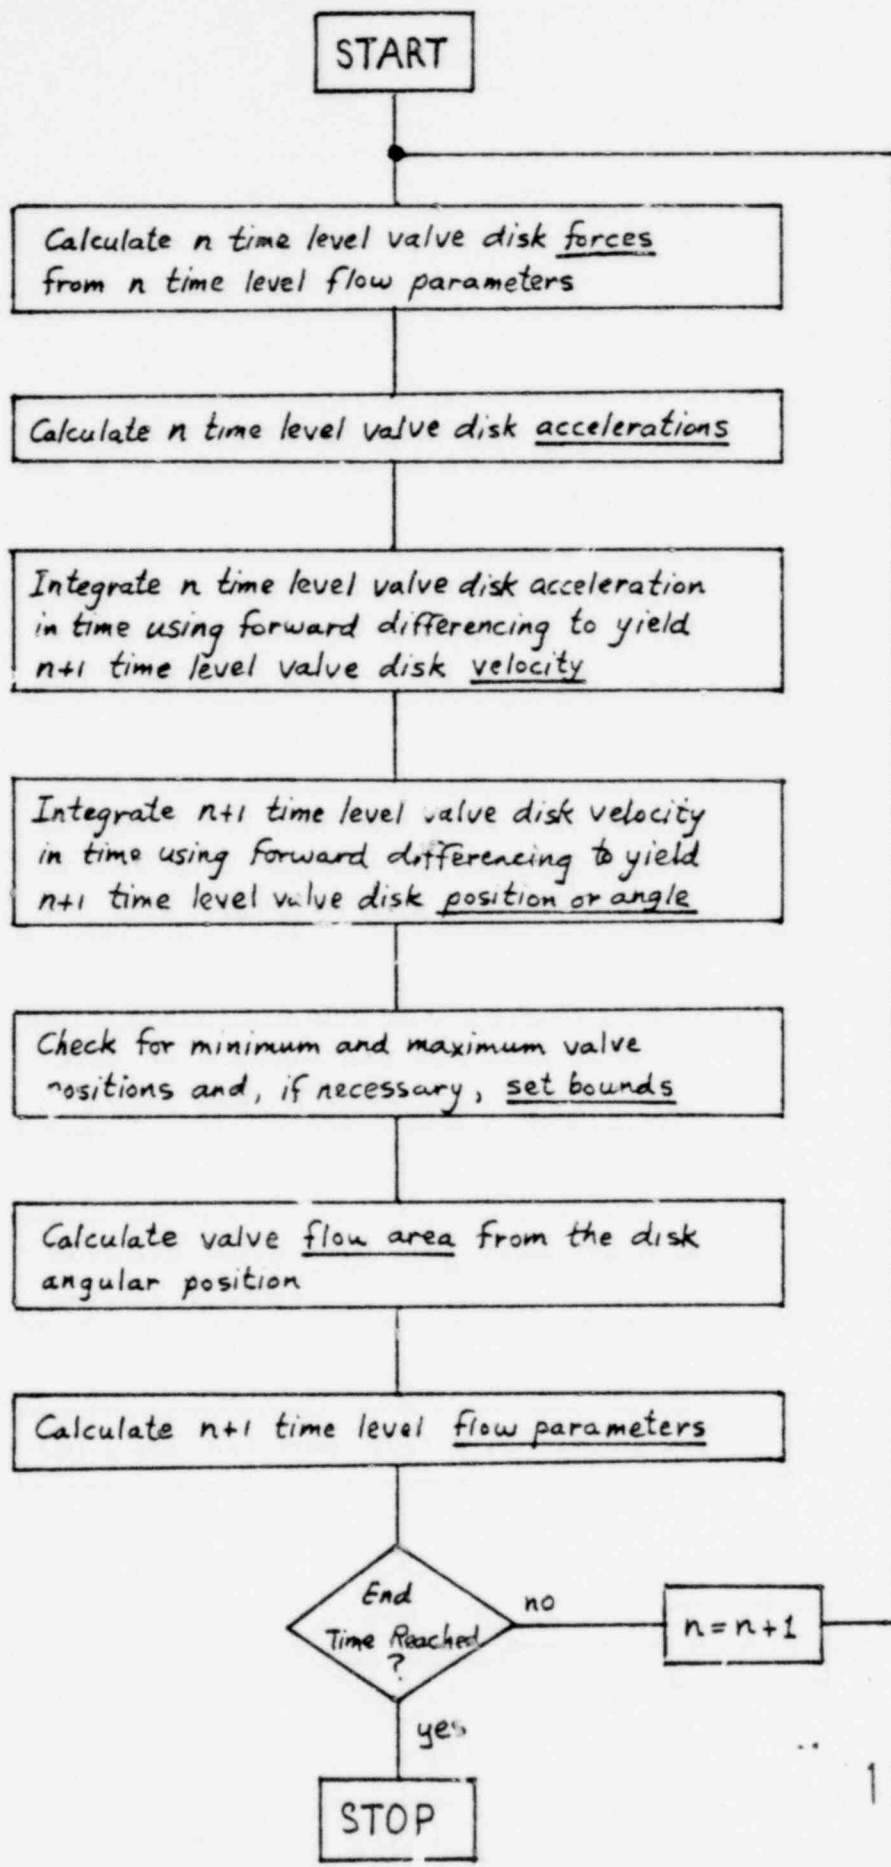 START
Calculate n time level valve disk forces
from n time level flow parameters
Calculate n time level valve disk accelerations
Integrate n time level valve disk acceleration
in time using forward differencing to yield
n+1 time level valve disk velocity
Integrate n+1 time level valve disk velocity
in time using forward differencing to yield
n+1 time level valve disk position or angle
Check for minimum and maximum valve
positions and, if necessary, set bounds
Calculate valve flow area from the disk
angular position
Calculate n+1 time level flow parameters
End
Time Reached
?
no
n=n+1
yes
STOP
1